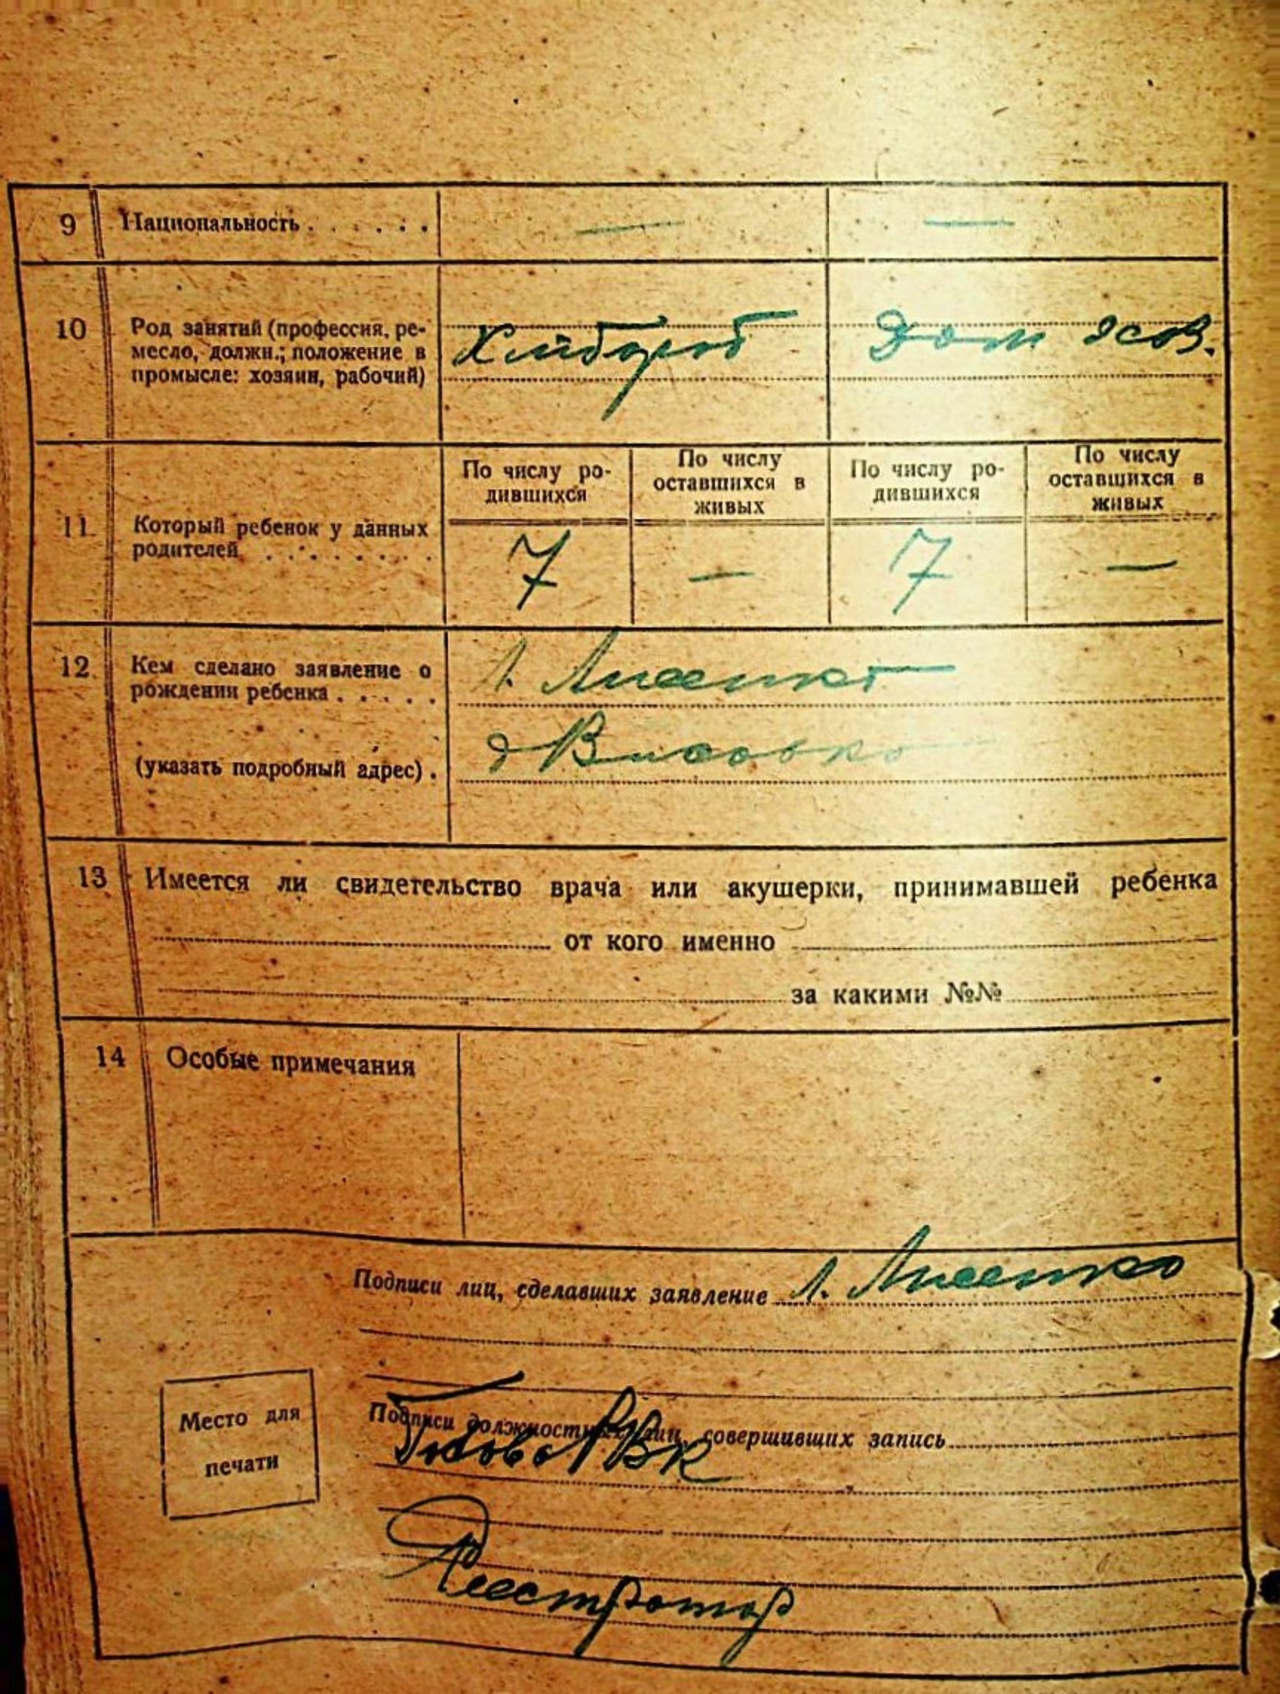 9 Национальность . . . . . . — —
10 Род занятий (профессия, ре-
месло, должн.; положение в
промысле: хозяин, рабочий)
Хлібороб Дом
11 Который ребенок у данных
родителей . . . . . . . .
По числу ро-
дившихся
По числу
оставшихся в
живых
По числу ро-
дившихся
По числу
оставшихся в
живых
7 — 7 —
12 Кем сделано заявление о
рождении ребенка . . . . .
Л. Лисенко
(указать подробный адрес) .
13 Имеется ли свидетельство врача или акушерки, принимавшей ребенка
от кого именно
за какими №№
14 Особые примечания
Подписи лиц, сделавших заявление Л. Лисенко
Место для
печати
Подписи должностных лиц, совершивших запись
Голова
Реестратор